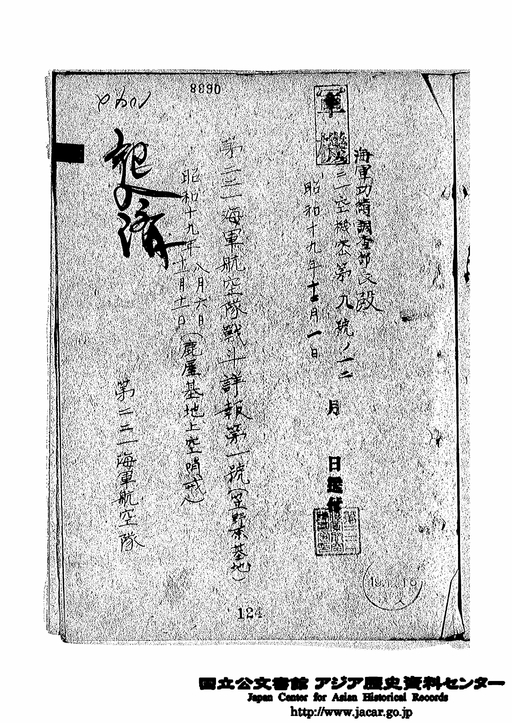 8890
軍機
海軍功績調査部長殿
二二一空機密第九號ノ一二
昭和十九年十二月一日
月 日送付
第二二一海軍航空隊戰斗詳報第一號(笠野原基地)
昭和十九年 八月六日
十一月十一日
(鹿屋基地上空哨戒)
記入濟
第二二一海軍航空隊
124
国立公文書館 アジア歴史資料センター
Japan Center for Asian Historical Records
http://www.jacar.go.jp